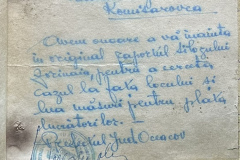 Komisarovca
Avem onoare a vă înainta
în original raportul Silozului
pentru a cerceta
cazul la fața locului și
lua măsuri pentru plata
lucrătorilor. —
Pretorul Jud. Oceacov